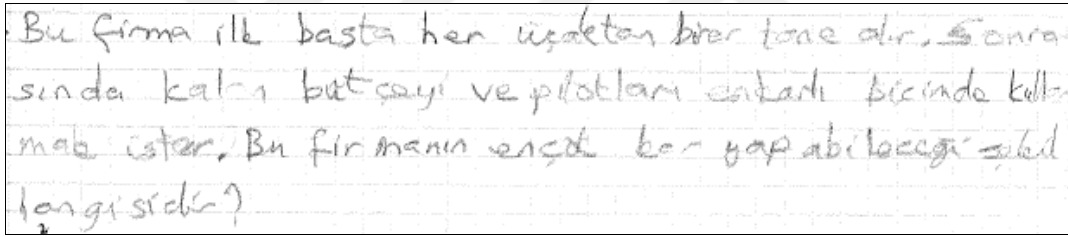 Bu firma ilk basta her uçaktan birer tane alır. Sonra
sında kalan bütçeyi ve pilotları enkarlı biçimde kulla
mak ister. Bu firmanın ençok kar yapabileceği şekil
hangisidir?